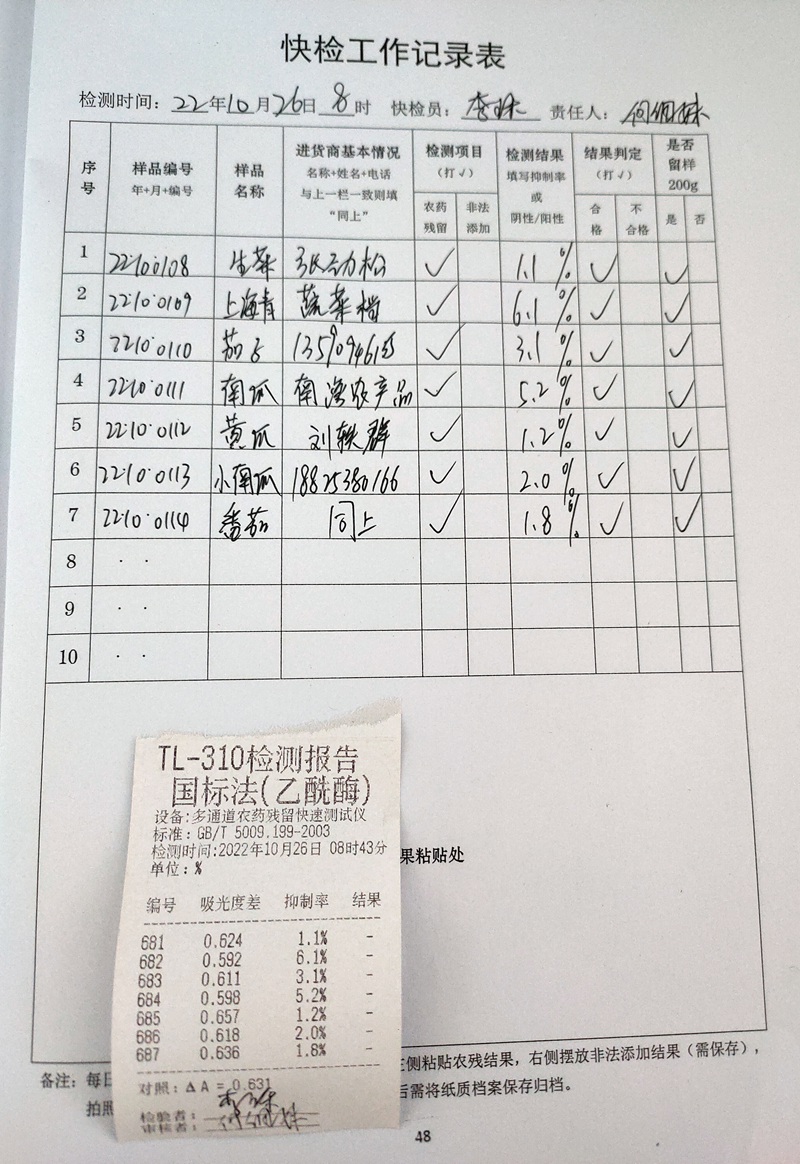 快检工作记录表
检测时间：22年10月26日8时 快检员：李 责任人：何
序号 样品编号 年+月+编号 样品名称 进货商基本情况 名称+姓名+电话 与上一栏一致则填“同上” 检测项目（打√） 农药残留 非法添加 检测结果 填写抑制率或阴性/阳性 结果判定（打√） 合格 不合格 是否留样200g 是 否
1 22·10·0108 生菜 张劲松 ✓ 1.1% ✓ ✓
2 22·10·0109 上海青 蔬菜档 ✓ 6.1% ✓ ✓
3 22·10·0110 茄子 ✓ 3.1% ✓ ✓
4 22·10·0111 南瓜 农产品 ✓ 5.2% ✓ ✓
5 22·10·0112 黄瓜 刘轶群 ✓ 1.2% ✓ ✓
6 22·10·0113 小南瓜 18825380166 ✓ 2.0% ✓ ✓
7 22·10·0114 番茄 同上 ✓ 1.8% ✓ ✓
8 · ·
9 · ·
10 · ·
TL-310检测报告
国标法(乙酰酶)
设备:多通道农药残留快速测试仪
标准：GB/T 5009.199-2003
检测时间:2022年10月26日 08时43分
单位：%
果粘贴处
编号 吸光度差 抑制率 结果
681 0.624 1.1% -
682 0.592 6.1% -
683 0.611 3.1% -
684 0.598 5.2% -
685 0.657 1.2% -
686 0.618 2.0% -
687 0.636 1.8% -
对照：ΔA = 0.631
检验者：李
审核者：何
备注：每日
侧粘贴农残结果，右侧摆放非法添加结果（需保存），
拍照
后需将纸质档案保存归档。
48